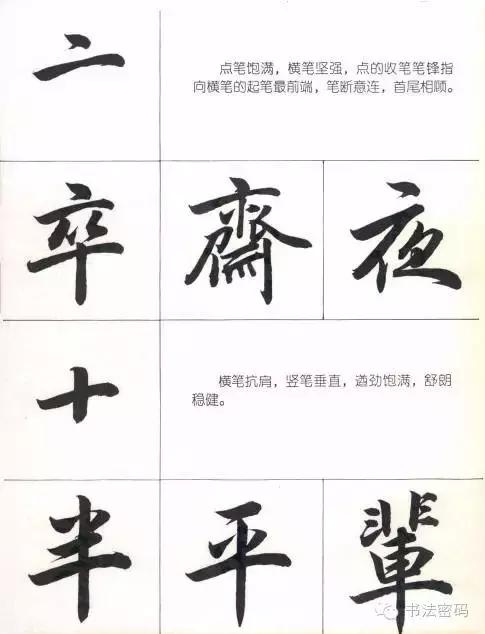 亠
点笔饱满，横笔坚强，点的收笔笔锋指
向横笔的起笔最前端，笔断意连，首尾相顾。
卒 齋 夜
十
横笔抗肩，竖笔垂直，遒劲饱满，舒朗
稳健。
半 平 輩
书法密码